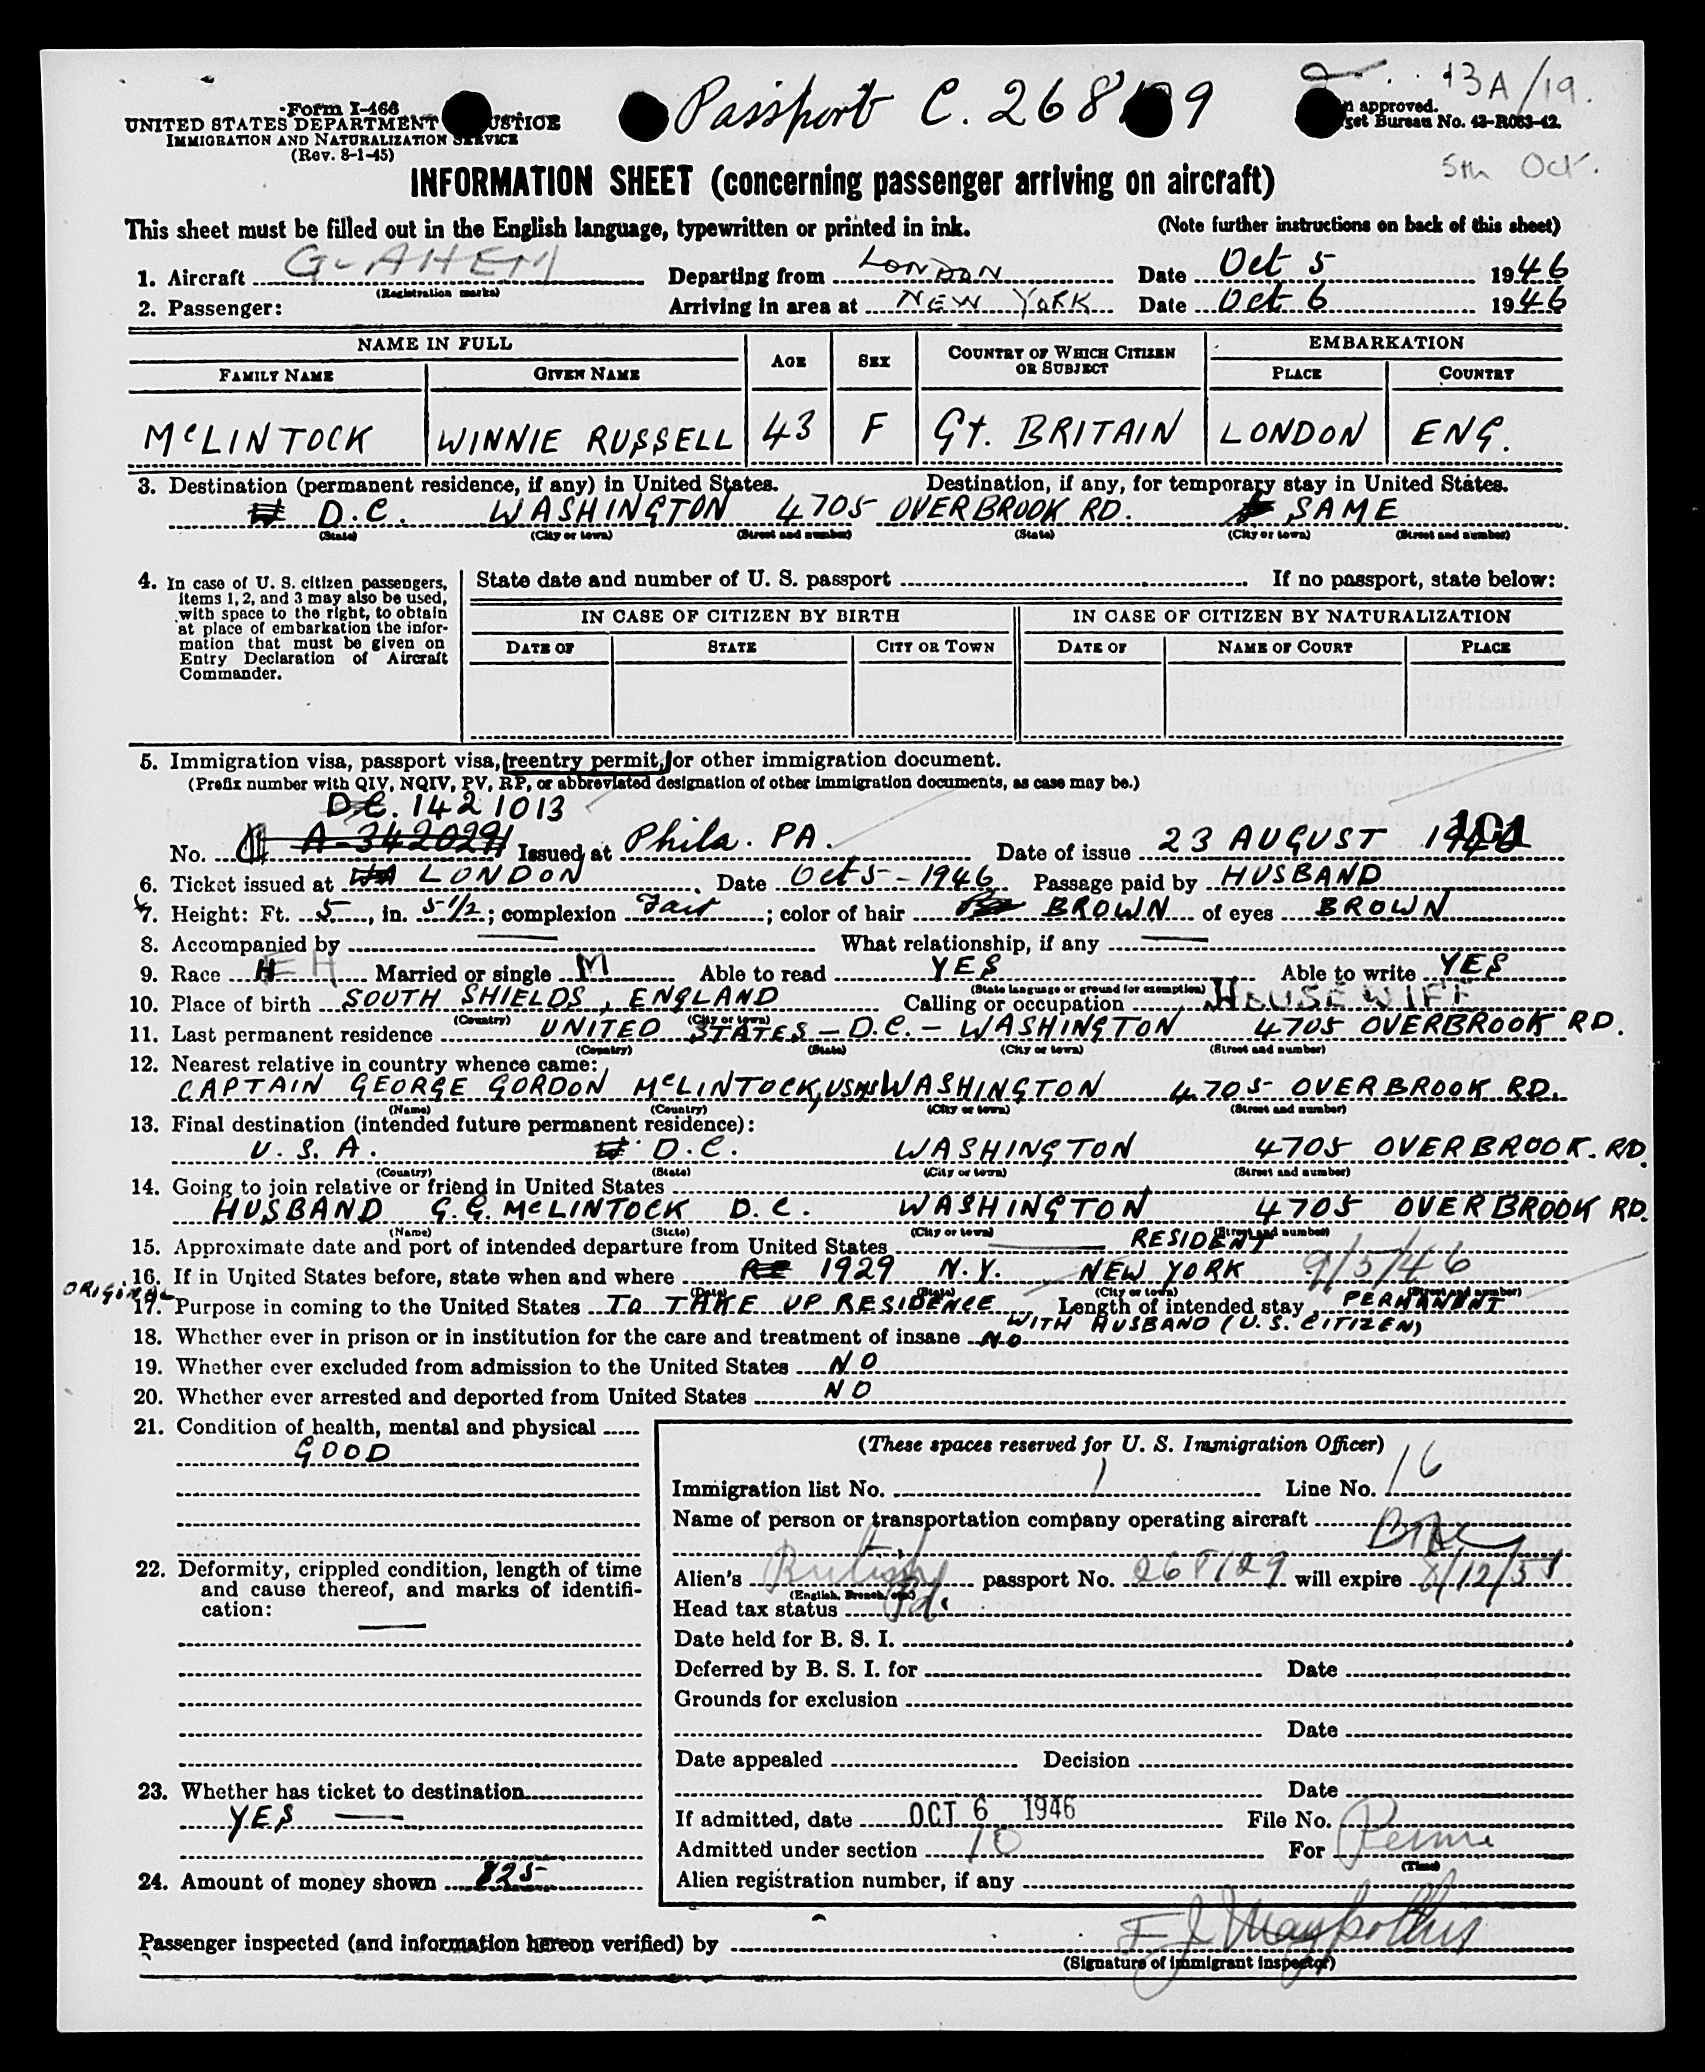 Form I-466
UNITED STATES DEPARTMENT JUSTICE
IMMIGRATION AND NATURALIZATION SERVICE
(Rev. 8-1-45)
Passport C. 268 9
13A/19.
approved.
get Bureau No. 43-R083-42.
5th Oct.
INFORMATION SHEET (concerning passenger arriving on aircraft)
This sheet must be filled out in the English language, typewritten or printed in ink. (Note further instructions on back of this sheet)
1. Aircraft G-AHEM Departing from LONDON Date Oct 5 1946
(Registration marks)
2. Passenger: Arriving in area at NEW YORK Date Oct 6 1946
NAME IN FULL AGE SEX COUNTRY OF WHICH CITIZEN OR SUBJECT EMBARKATION
FAMILY NAME GIVEN NAME PLACE COUNTRY
McLINTOCK WINNIE RUSSELL 43 F Gt. BRITAIN LONDON ENG.
3. Destination (permanent residence, if any) in United States. Destination, if any, for temporary stay in United States.
D.C. WASHINGTON 4705 OVERBROOK RD. SAME
(State) (City or town) (Street and number) (State) (City or town) (Street and number)
4. In case of U. S. citizen passengers, items 1, 2, and 3 may also be used, with space to the right, to obtain at place of embarkation the information that must be given on Entry Declaration of Aircraft Commander.
State date and number of U. S. passport If no passport, state below:
IN CASE OF CITIZEN BY BIRTH IN CASE OF CITIZEN BY NATURALIZATION
DATE OF STATE CITY OR TOWN DATE OF NAME OF COURT PLACE
5. Immigration visa, passport visa, reentry permit, or other immigration document.
(Prefix number with QIV, NQIV, PV, RP, or abbreviated designation of other immigration documents, as case may be.)
1421013
No. A-342029 Issued at Phila. PA. Date of issue 23 AUGUST 1946
101
6. Ticket issued at LONDON Date Oct 5-1946 Passage paid by HUSBAND
7. Height: Ft. 5, in. 5 1/2; complexion Fair; color of hair BROWN of eyes BROWN
8. Accompanied by — What relationship, if any —
9. Race Married or single M Able to read YES Able to write YES
(State language or ground for exemption)
10. Place of birth SOUTH SHIELDS, ENGLAND Calling or occupation HOUSEWIFE
(Country) (City or town)
11. Last permanent residence UNITED STATES - D.C. - WASHINGTON 4705 OVERBROOK RD.
(Country) (State) (City or town) (Street and number)
12. Nearest relative in country whence came:
CAPTAIN GEORGE GORDON McLINTOCK, USMS WASHINGTON 4705 OVERBROOK RD.
(Name) (Country) (City or town) (Street and number)
13. Final destination (intended future permanent residence):
U.S.A. D.C. WASHINGTON 4705 OVERBROOK. RD.
(Country) (State) (City or town) (Street and number)
14. Going to join relative or friend in United States
HUSBAND G.G. McLINTOCK D.C. WASHINGTON 4705 OVERBROOK RD.
(Name) (State) (City or town) (Street and number)
15. Approximate date and port of intended departure from United States — RESIDENT
16. If in United States before, state when and where 1929 N.Y. NEW YORK 9/5/46
(Date) (State) (City or town) (Street and number)
ORIGINAL
17. Purpose in coming to the United States TO TAKE UP RESIDENCE Length of intended stay PERMANENT
WITH HUSBAND (U.S. CITIZEN)
18. Whether ever in prison or in institution for the care and treatment of insane NO
19. Whether ever excluded from admission to the United States NO
20. Whether ever arrested and deported from United States NO
21. Condition of health, mental and physical
GOOD
22. Deformity, crippled condition, length of time and cause thereof, and marks of identification:
—
23. Whether has ticket to destination
YES —
24. Amount of money shown $25
(These spaces reserved for U. S. Immigration Officer)
Immigration list No. 1 Line No. 16
Name of person or transportation company operating aircraft
Alien's British passport No. 268129 will expire 8/12/51
(English, French, etc.)
Head tax status Pd.
Date held for B. S. I.
Deferred by B. S. I. for Date
Grounds for exclusion
Date
Date appealed Decision
Date
If admitted, date OCT 6 1946 File No.
Admitted under section 10 For Perm
(Time)
Alien registration number, if any
Passenger inspected (and information hereon verified) by
(Signature of immigrant inspector)